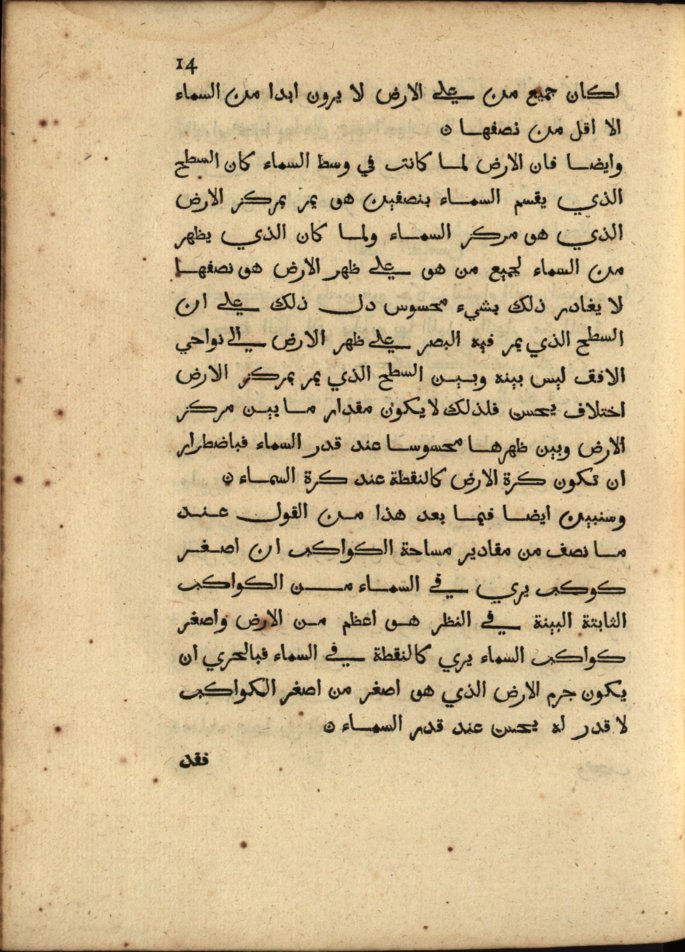 14
لكان جميع من علي الارض لا يرون ابدا من السماء
الا اقل من نصفها ن
وايضا فان الارض لما كانت في وسط السماء كان السطح
الذي يقسم السماء بنصفين هو يمر بمركز الارض
الذي هو مركز السماء ولما كان الذي يظهر
من السماء لجميع من هو علي ظهر الارض هو نصفها
لا يغادر ذلك بشيء محسوس دل ذلك علي ان
السطح الذي يمر فيه البصر علي ظهر الارض الي نواحي
الافق ليس بينه وبين السطح الذي يمر بمركز الارض
اختلاف يحس فلذلك لا يكون مقدار ما بين مركز
الارض وبين ظهرها محسوسا عند قدر السماء فباضطرار
ان تكون كرة الارض كالنقطة عند كرة السماء ن
وسنبين ايضا فيما بعد هذا من القول عند
ما نصف من مقادير مساحة الكواكب ان اصغر
كوكب يري في السماء من الكواكب
الثابتة البينة في النظر هو اعظم من الارض واصغر
كواكب السماء يري كالنقطة في السماء فبالحري ان
يكون جرم الارض الذي هو اصغر من اصغر الكواكب
لا قدر له يحس عند قدر السماء ن
فقد